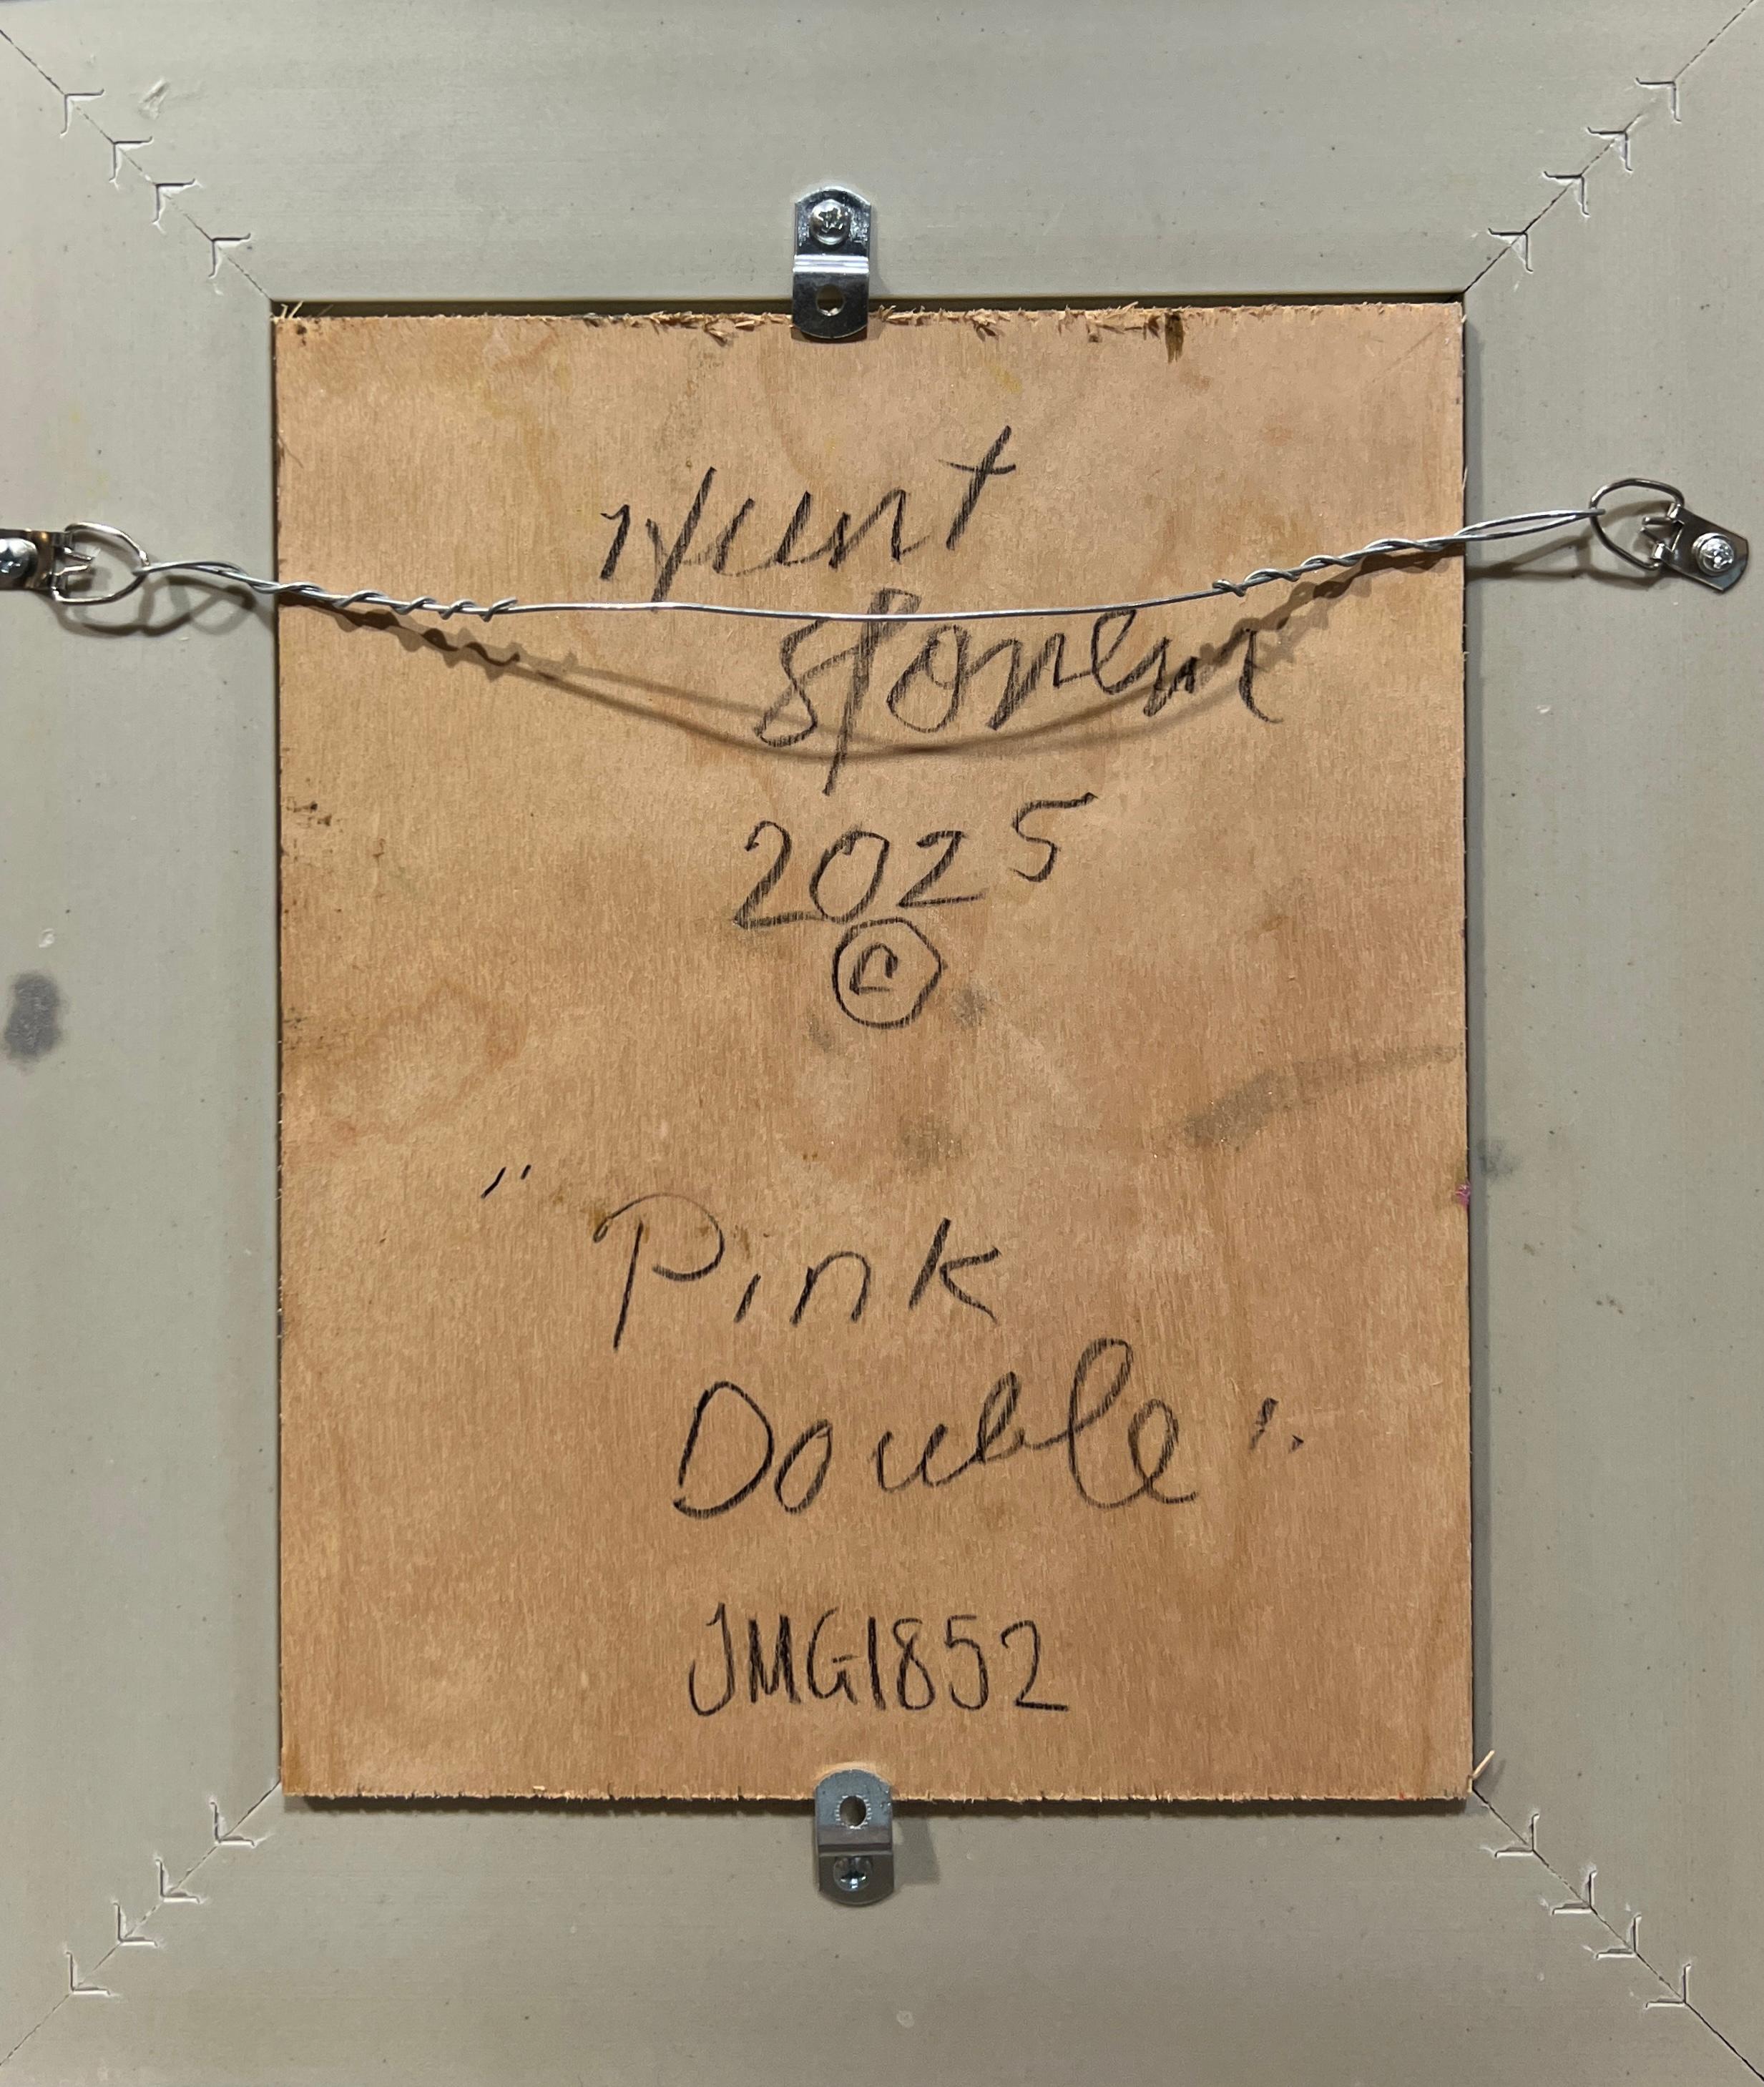 Hunt
Slonem
2025
©
"Pink
Double".
JMG1852